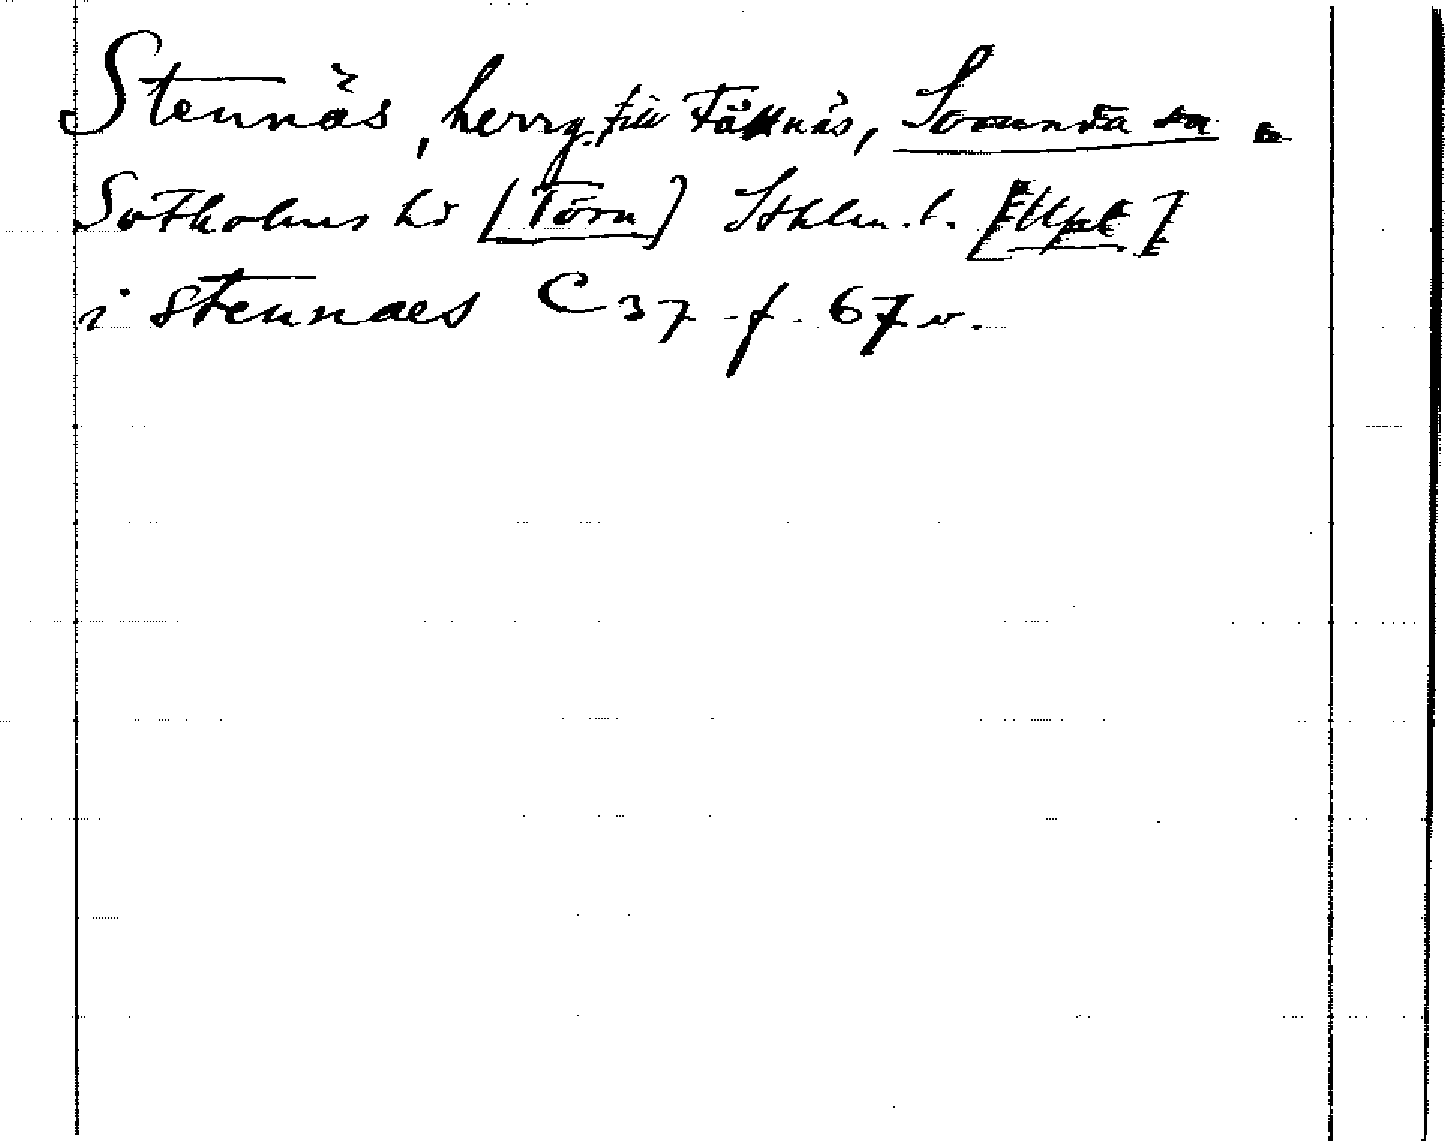 Stennäs, herrg. till Fållnäs, Sorunda sn
Sotholms hd [Törn] Sthlm. l. [Upl]
i stennaes C 37 f. 67 v.